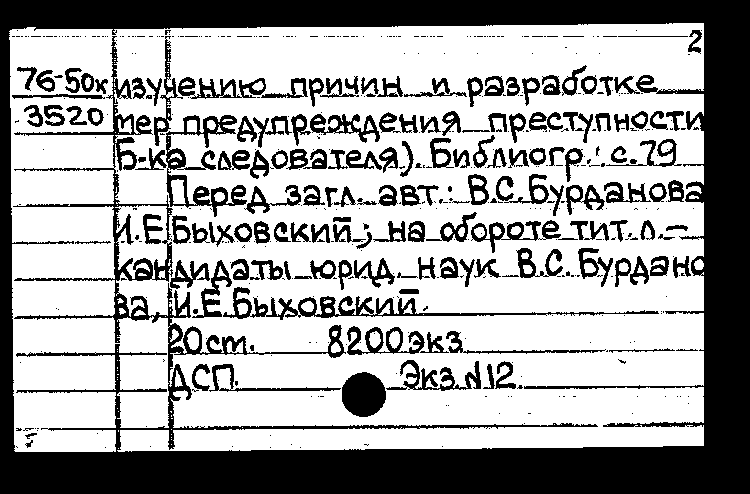 2
76-50к изучению причин и разработке
3520 мер предупреждения преступности
Б-ка следователя). Библиогр.: с. 79
Перед загл. авт.: В.С. Бурданова
И.Е. Быховский; на обороте тит. л. –
кандидаты юрид. наук В.С. Бурдано
ва, И.Е. Быховский.
20 ст. 8200 экз
ДСП. Экз. №12.